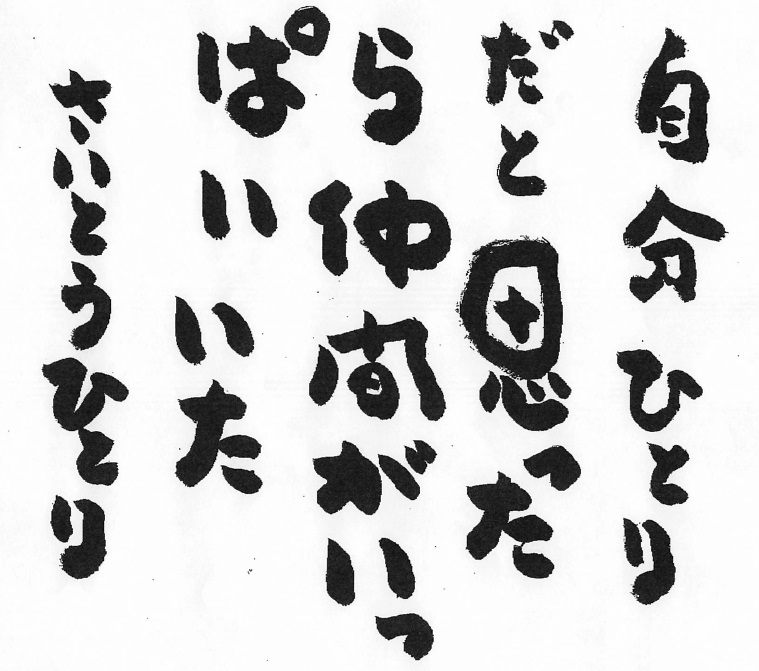 自分ひとり
だと思った
ら仲間がいっ
ぱいいた
さいとうひとり